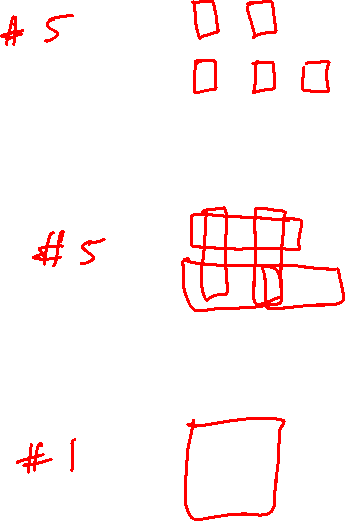 # 5
# 5
# 1